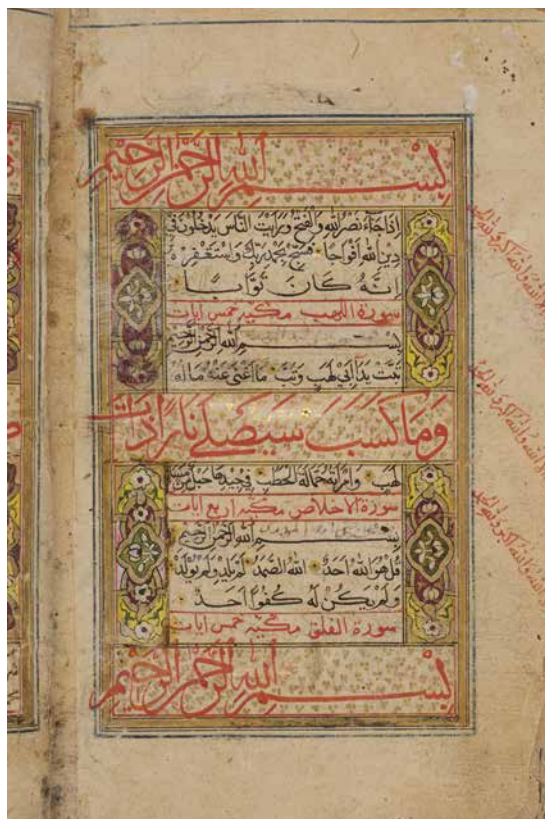 بسم الله الرحمن الرحيم
اذا جاء نصر الله والفتح ورايت الناس يدخلون في
دين الله افواجا فسبح بحمد ربك واستغفره
انه كان توابا
سورة اللهب مكية خمس ايات
بسم الله الرحمن الرحيم
تبت يدا ابي لهب وتب ما اغنى عنه ماله
وَمَا كَسَبَ سَيَصْلٰى نَارًا ذَاتَ
لهب وامراته حمالة الحطب في جيدها حبل من مسد
سورة الاخلاص مكية اربع ايات
بسم الله الرحمن الرحيم
قل هو الله احد الله الصمد لم يلد ولم يولد
ولم يكن له كفوا احد
سورة الفلق مكية خمس ايات
بسم الله الرحمن الرحيم